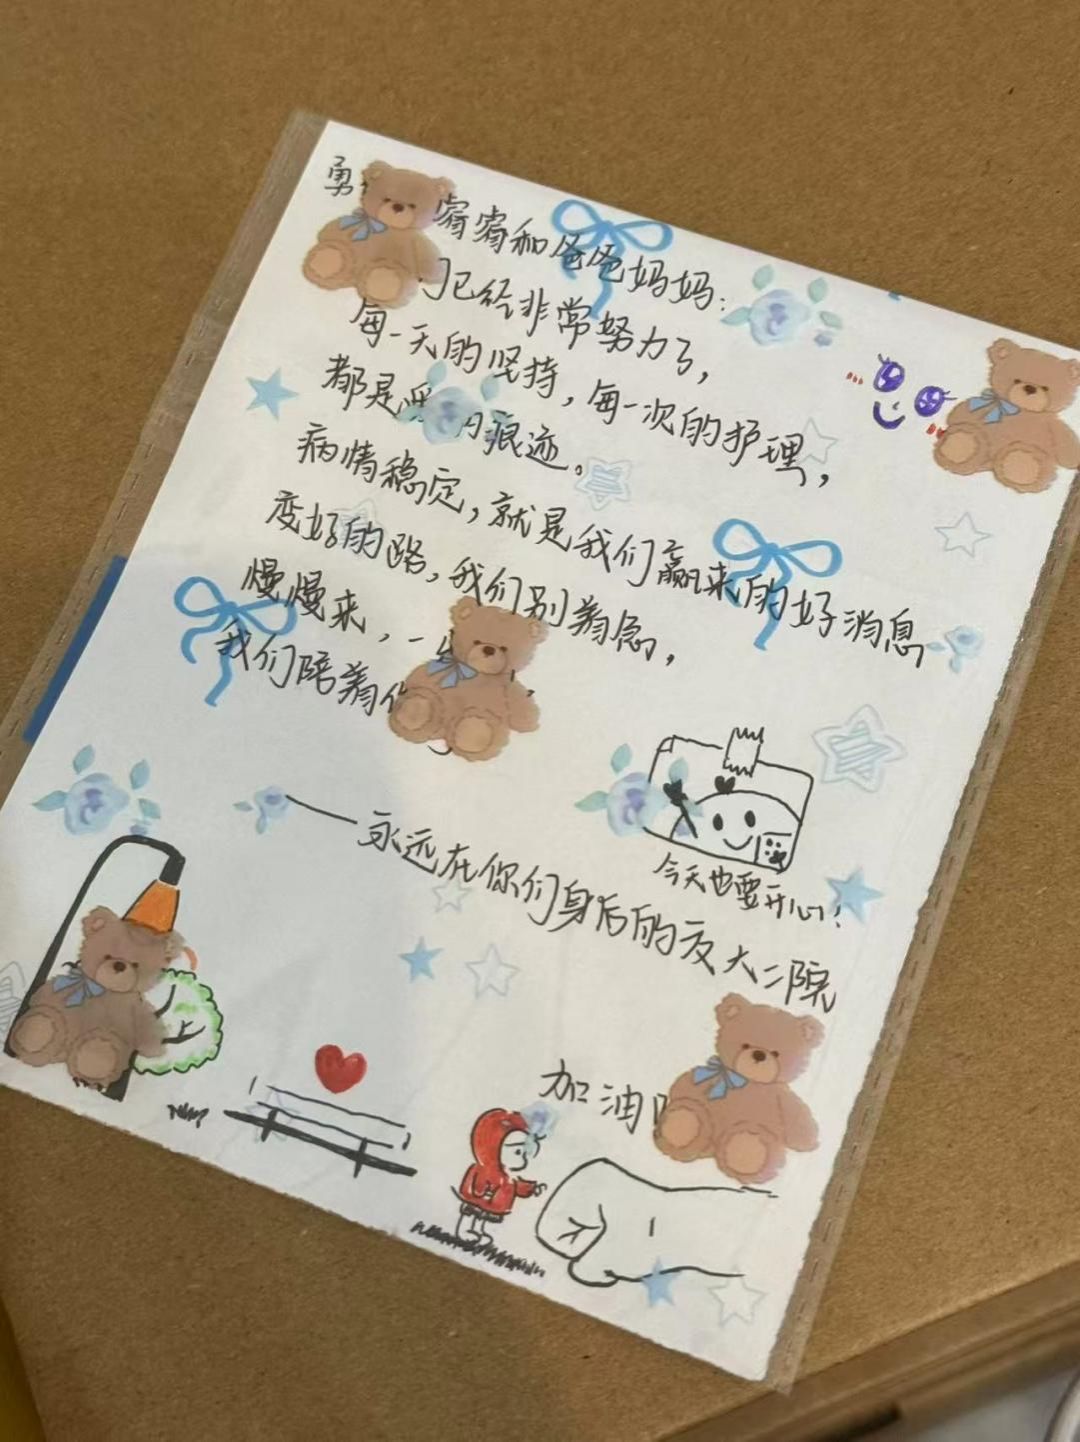 勇 睿睿和爸爸妈妈：
已经非常努力了，
每一天的坚持，每一次的护理，
都是 痕迹。
病情稳定，就是我们赢来的好消息
变好的路，我们别着急，
慢慢来，一
我们陪着
——永远在你们身后的交大二院
今天也要开心！
加油